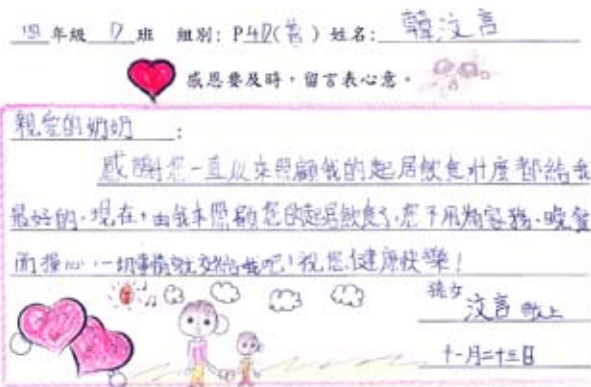 四 年級 D 班 組別: P4D(普) 姓名: 韓汶言
感恩要及時，留言表心意。
親愛的奶奶 :
感謝您一直以來照顧我的起居飲食，
都給我
最好的。現在，由我來照顧您的起居飲食了，您不用為家務、晚餐
而擔心，一切事情就交給我吧！祝您健康快樂！
孫女
汶言 敬上
十一月二十三日